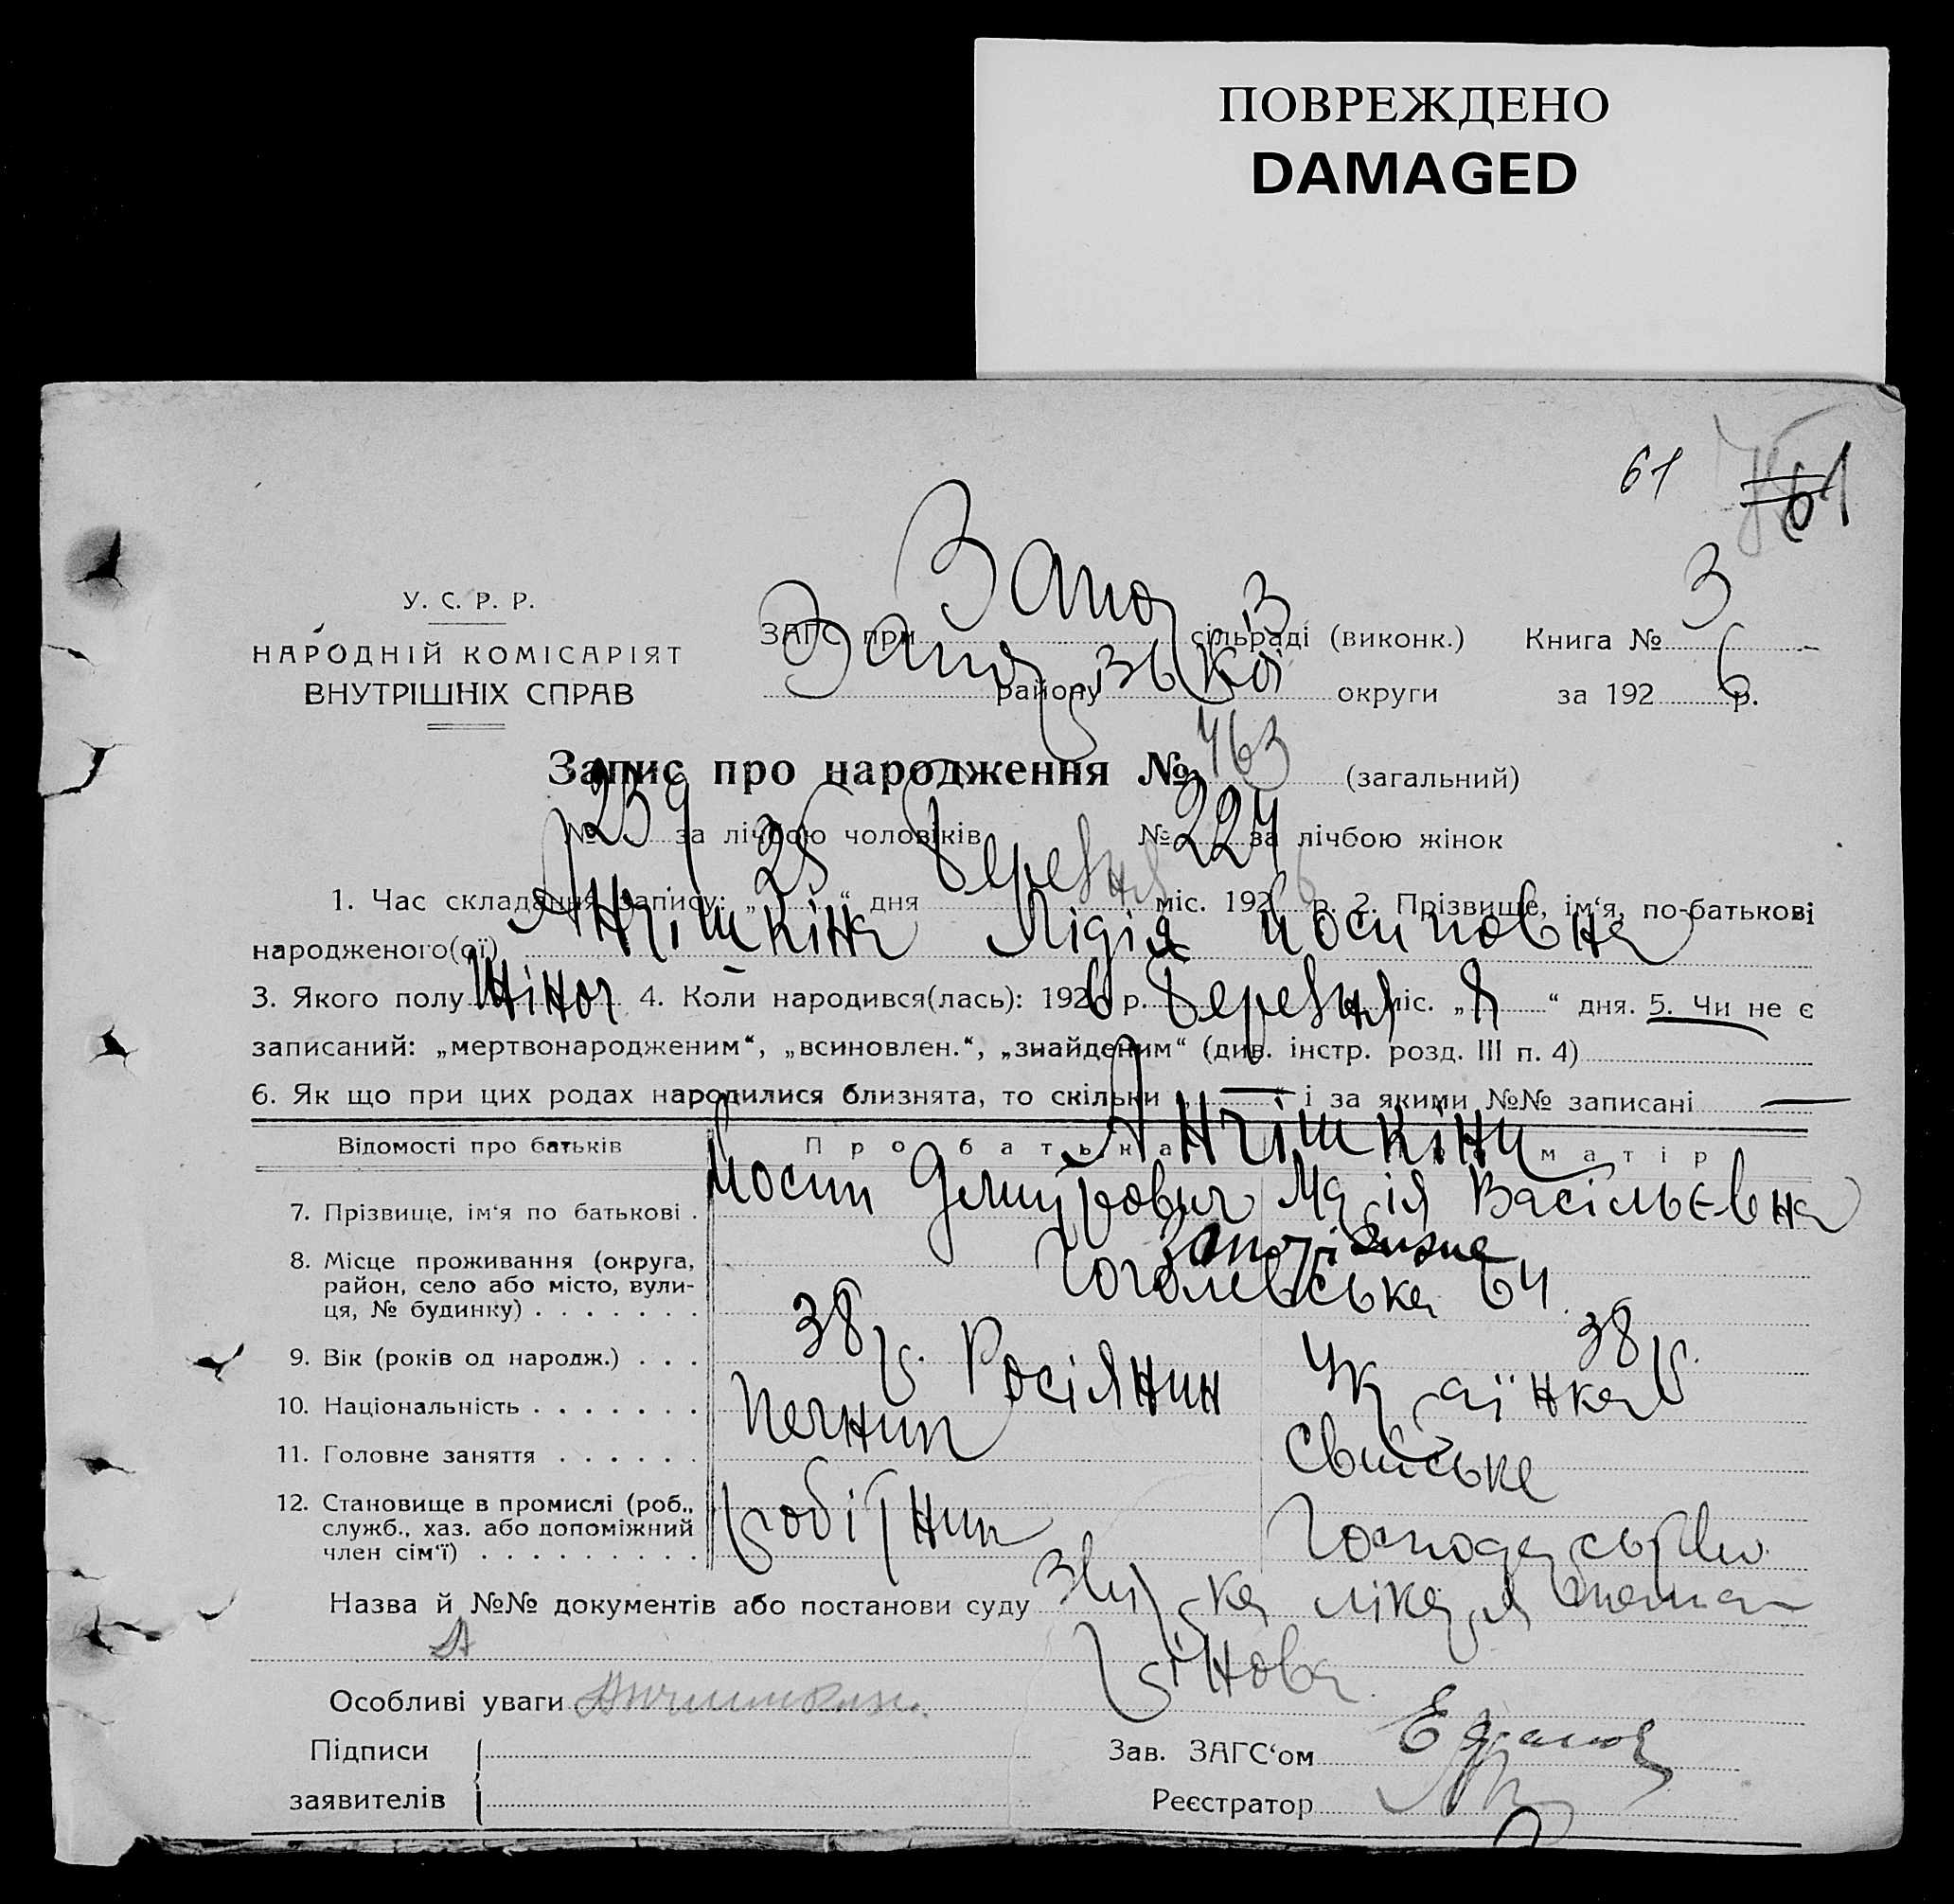 ПОВРЕЖДЕНО
DAMAGED
61 61
У. С. Р. Р.
НАРОДНІЙ КОМІСАРІЯТ
ВНУТРІШНІХ СПРАВ
ЗАГС при Запор сільраді (виконк.) Книга № 3
району округи за 1926 р.
Запис про народження № 463 (загальний)
№ 239 за лічбою чоловіків № 224 за лічбою жінок
1. Час складання запису: „ 25 “ дня Березня міс. 1926 р. 2. Прізвище, ім‘я, по-батькові
народженого(ої) Анчішкіна Лідія Йосиповна
3. Якого полу Жіноч 4. Коли народився(лась): 1926 р. Березня міс. „ 8 “ дня. 5. Чи не є
записаний: „мертвонародженим“, „всиновлен.“, „знайденим“ (див. інстр. розд. III п. 4)
6. Як що при цих родах народилися близнята, то скільки „ — “ і за якими №№ записані —
Відомості про батьків Про батька матір
Анчішкіни
7. Прізвище, ім‘я по батькові . Йосип Дмитрович Марія Васільєвна
8. Місце проживання (округа, район, село або місто, вулиця, № будинку) . . . . . . . Запоріжжє
Гоголевська 64
9. Вік (років од народж.) . . . 38 р. 38 р.
10. Національність . . . . . . . Росіянин Українка
11. Головне заняття . . . . . . Печник Свійське
12. Становище в промислі (роб., служб., хаз. або допоміжний член сім‘ї) . . . . . . . . . робітник господарство
Назва й №№ документів або постанови суду лікаря
А
Особливі уваги Анчишкин
Підписи заявителів
Зав. ЗАГС‘ом
Реєстратор